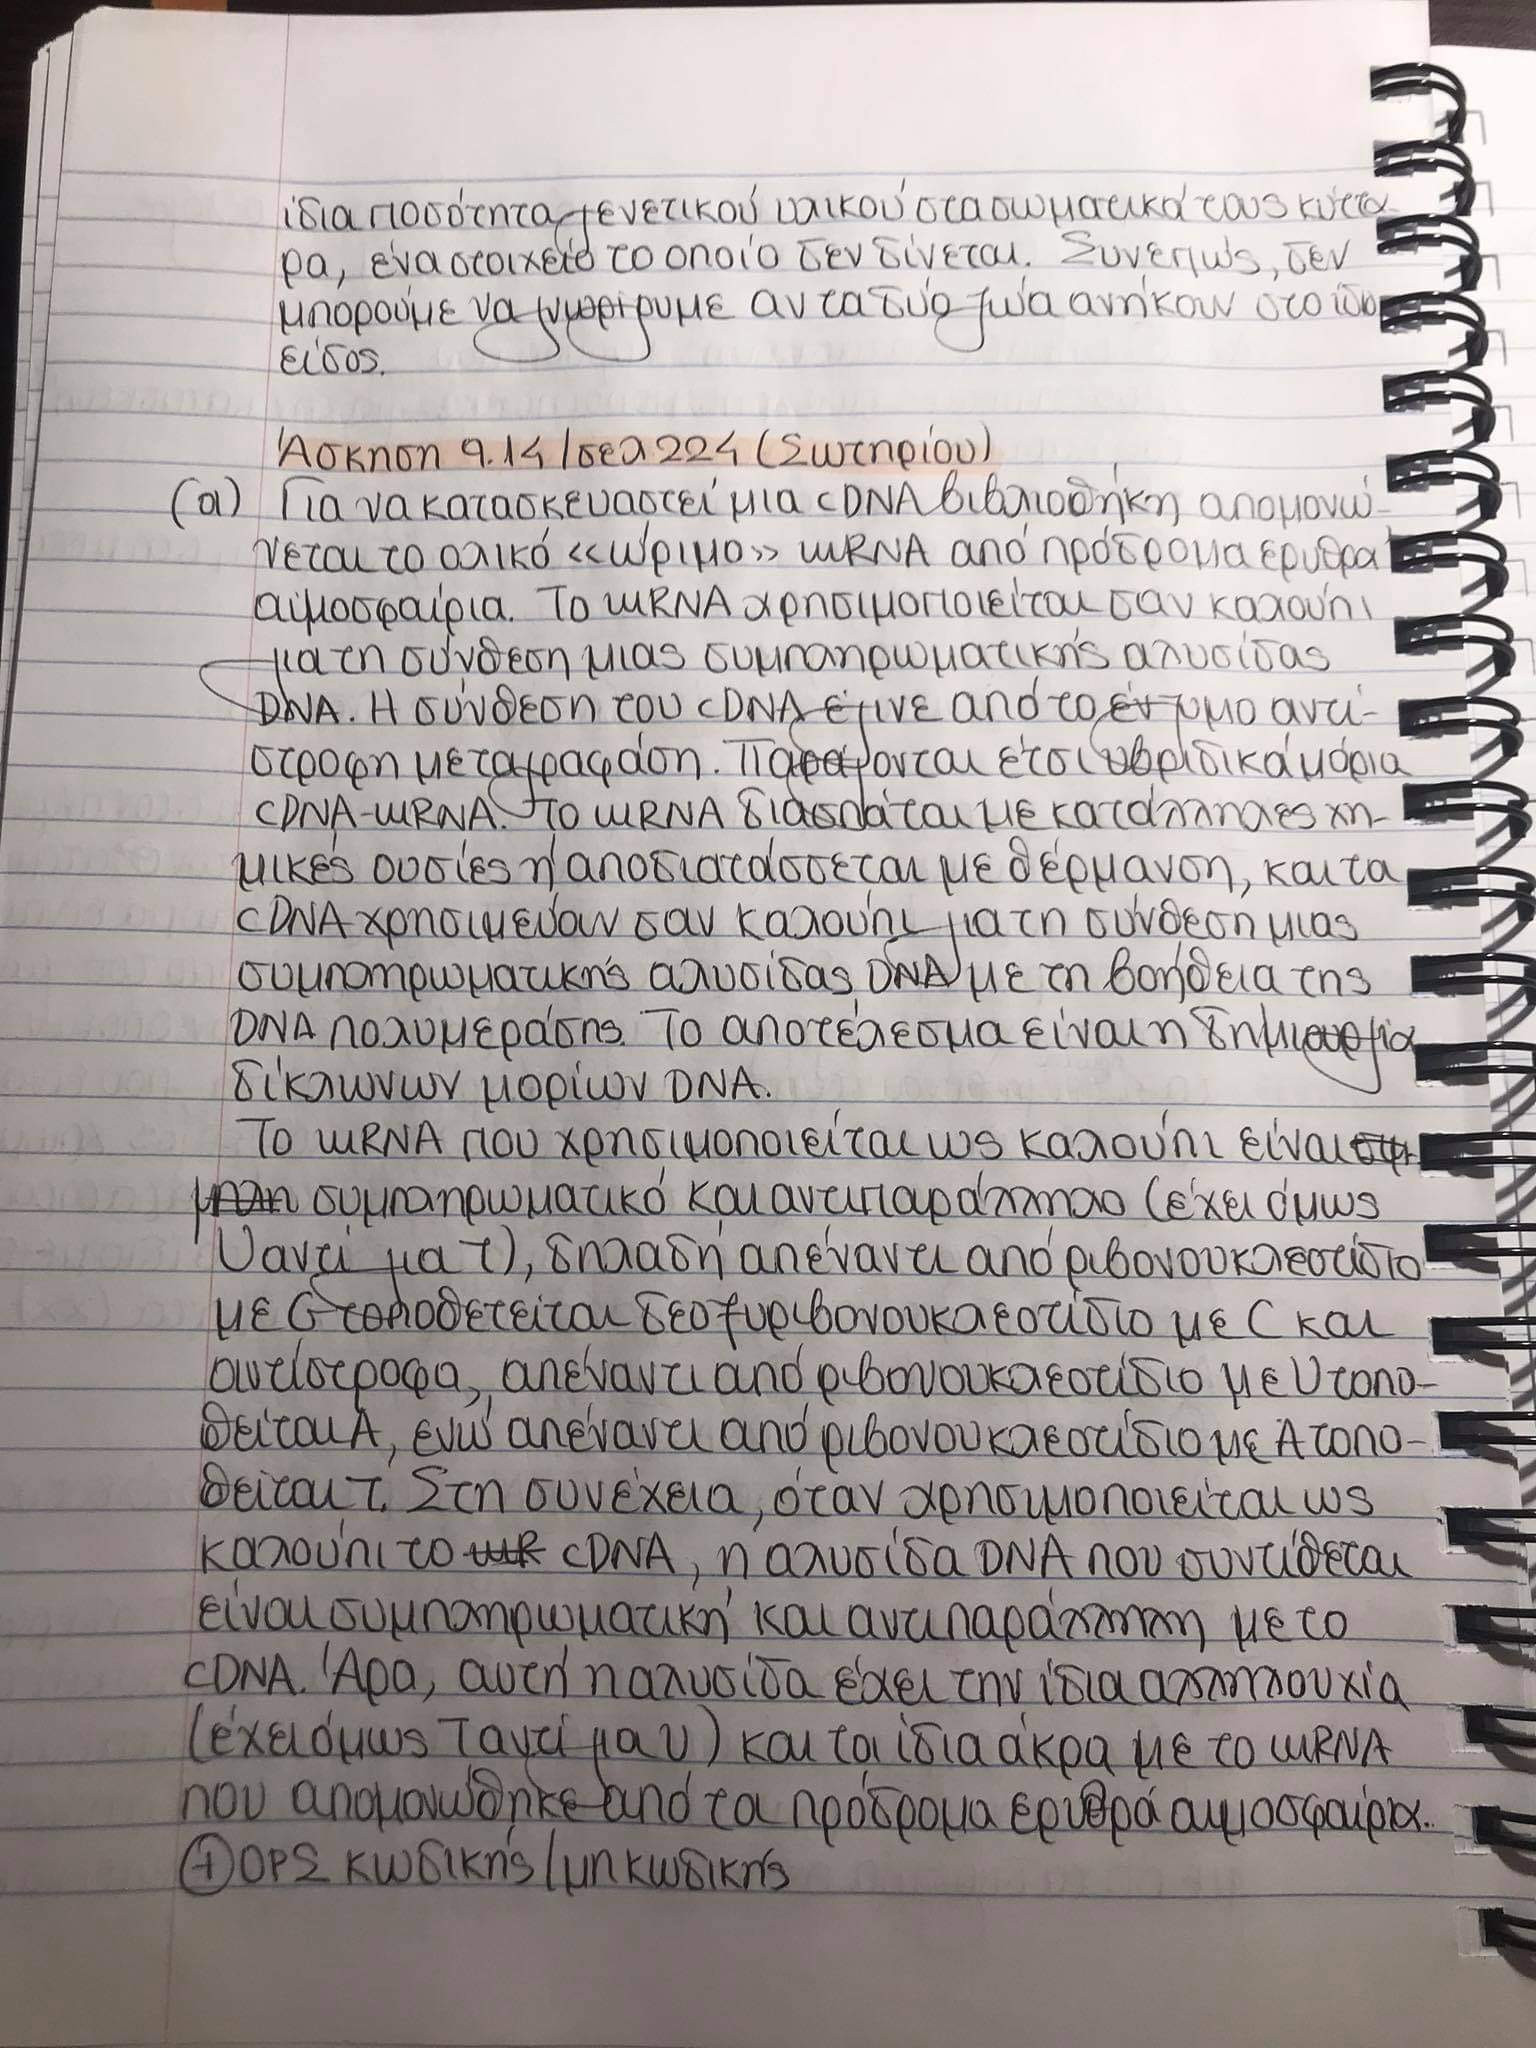 ίδια ποσότητα γενετικού υλικού στα σωματικά τους κύττα-
ρα, ένα στοιχείο το οποίο δεν δίνεται. Συνεπώς, δεν
μπορούμε να γνωρίζουμε αν τα δύο ζώα ανήκουν στο ίδιο
είδος.
Άσκηση 9.14/σελ 224 (Σωτηρίου)
(α) Για να κατασκευαστεί μια cDNA βιβλιοθήκη απομονώ-
νεται το ολικό «ώριμο» mRNA από πρόδρομα ερυθρά
αιμοσφαίρια. Το mRNA χρησιμοποιείται σαν καλούπι
για τη σύνθεση μιας συμπληρωματικής αλυσίδας
DNA. Η σύνθεση του cDNA έγινε από το ένζυμο αντί-
στροφη μεταγραφάση. Παράγονται έτσι υβριδικά μόρια
cDNA-mRNA. Το mRNA διασπάται με κατάλληλες χη-
μικές ουσίες ή αποδιατάσσεται με θέρμανση, και τα
cDNA χρησιμεύουν σαν καλούπι για τη σύνθεση μιας
συμπληρωματικής αλυσίδας DNA με τη βοήθεια της
DNA πολυμεράσης. Το αποτέλεσμα είναι η δημιουργία
δίκλωνων μορίων DNA.
Το mRNA που χρησιμοποιείται ως καλούπι είναι
συμπληρωματικό και αντιπαράλληλο (έχει όμως
U αντί για T), δηλαδή απέναντι από ριβονουκλεοτίδιο
με G τοποθετείται δεοξυριβονουκλεοτίδιο με C και
αντίστροφα, απέναντι από ριβονουκλεοτίδιο με U τοπο-
θείται A, ενώ απέναντι από ριβονουκλεοτίδιο με A τοπο-
θείται T. Στη συνέχεια, όταν χρησιμοποιείται ως
καλούπι το mR cDNA, η αλυσίδα DNA που συντίθεται
είναι συμπληρωματική και αντιπαράλληλη με το
cDNA. Άρα, αυτή η αλυσίδα έχει την ίδια αλληλουχία
(έχει όμως T αντί για U) και τα ίδια άκρα με το mRNA
που απομονώθηκε από τα πρόδρομα ερυθρά αιμοσφαίρια.
+ ΟΡΣ κωδικής/μη κωδικής